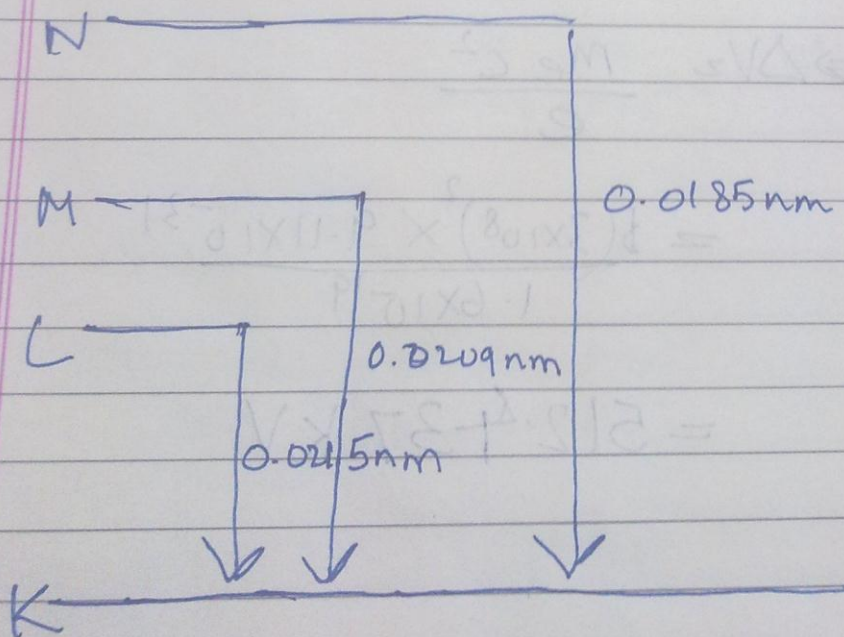 N
0.0185nm
M
0.0209nm
L
0.0215nm
K